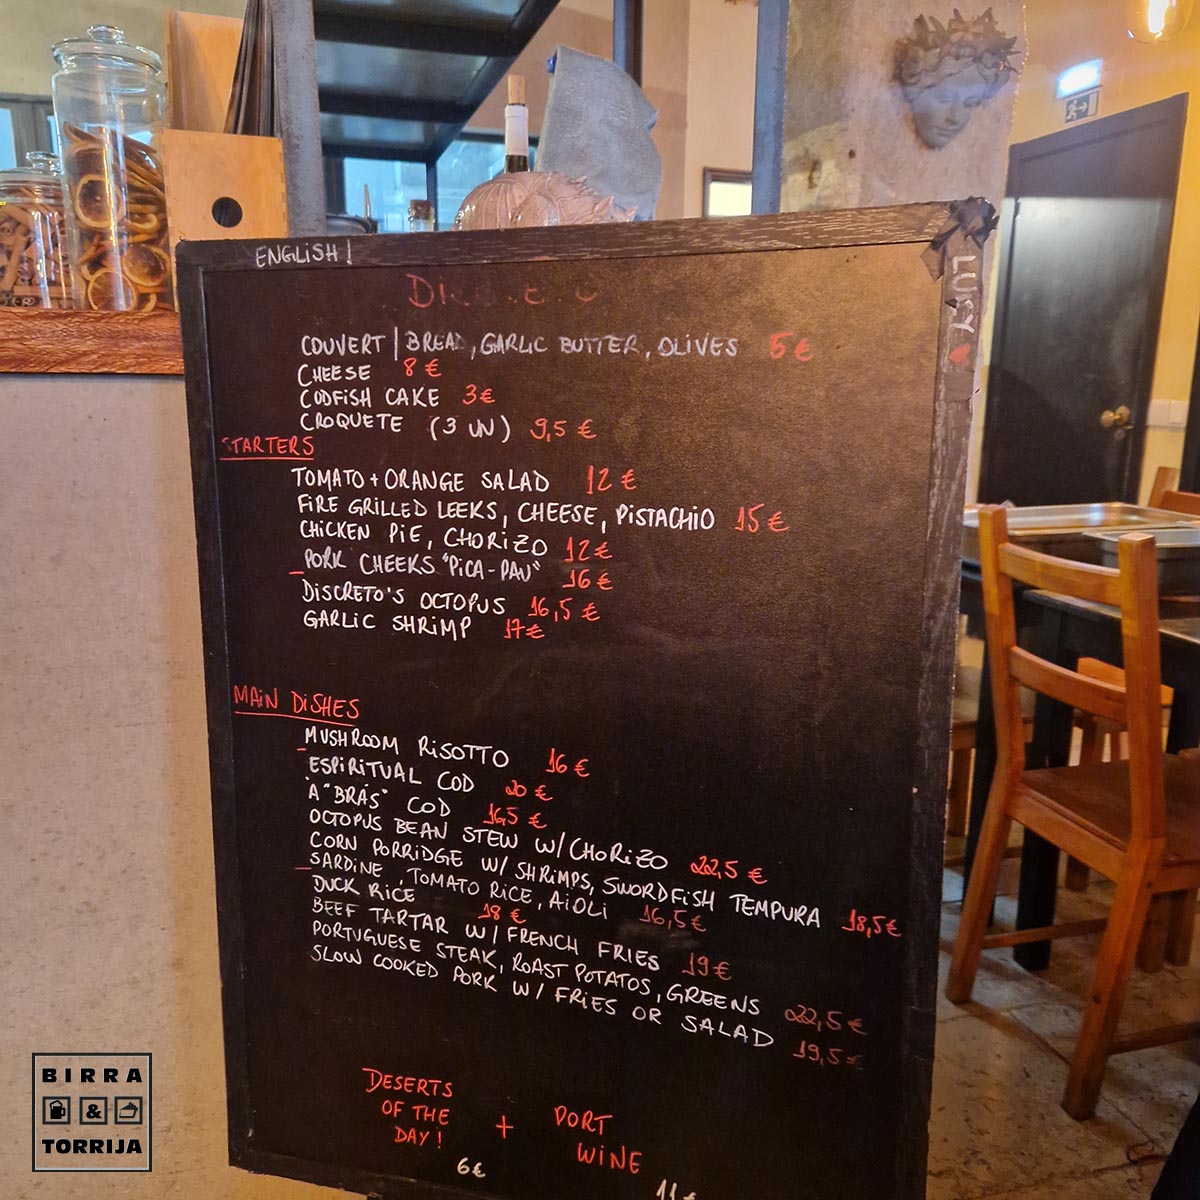 ENGLISH!
LUCY
COUVERT | BREAD, GARLIC BUTTER, OLIVES 5€
CHEESE 8€
CODFISH CAKE 3€
CROQUETE (3 UN) 9,5€
STARTERS
TOMATO + ORANGE SALAD 12€
FIRE GRILLED LEEKS, CHEESE, PISTACHIO 15€
CHICKEN PIE, CHORIZO 12€
PORK CHEEKS "PICA-PAU" 16€
DISCRETO'S OCTOPUS 16,5€
GARLIC SHRIMP 17€
MAIN DISHES
MUSHROOM RISOTTO 16€
ESPIRITUAL COD 20€
À "BRÁS" COD 16,5€
OCTOPUS BEAN STEW W/ CHORIZO 22,5€
CORN PORRIDGE W/ SHRIMPS, SWORDFISH TEMPURA 18,5€
SARDINE, TOMATO RICE, AIOLI 16,5€
DUCK RICE 18€
BEEF TARTAR W/ FRENCH FRIES 19€
PORTUGUESE STEAK, ROAST POTATOS, GREENS 22,5€
SLOW COOKED PORK W/ FRIES OR SALAD 19,5€
DESERTS
OF THE
DAY!
6€
+
PORT
WINE
11€
BIRRA
&
TORRIJA